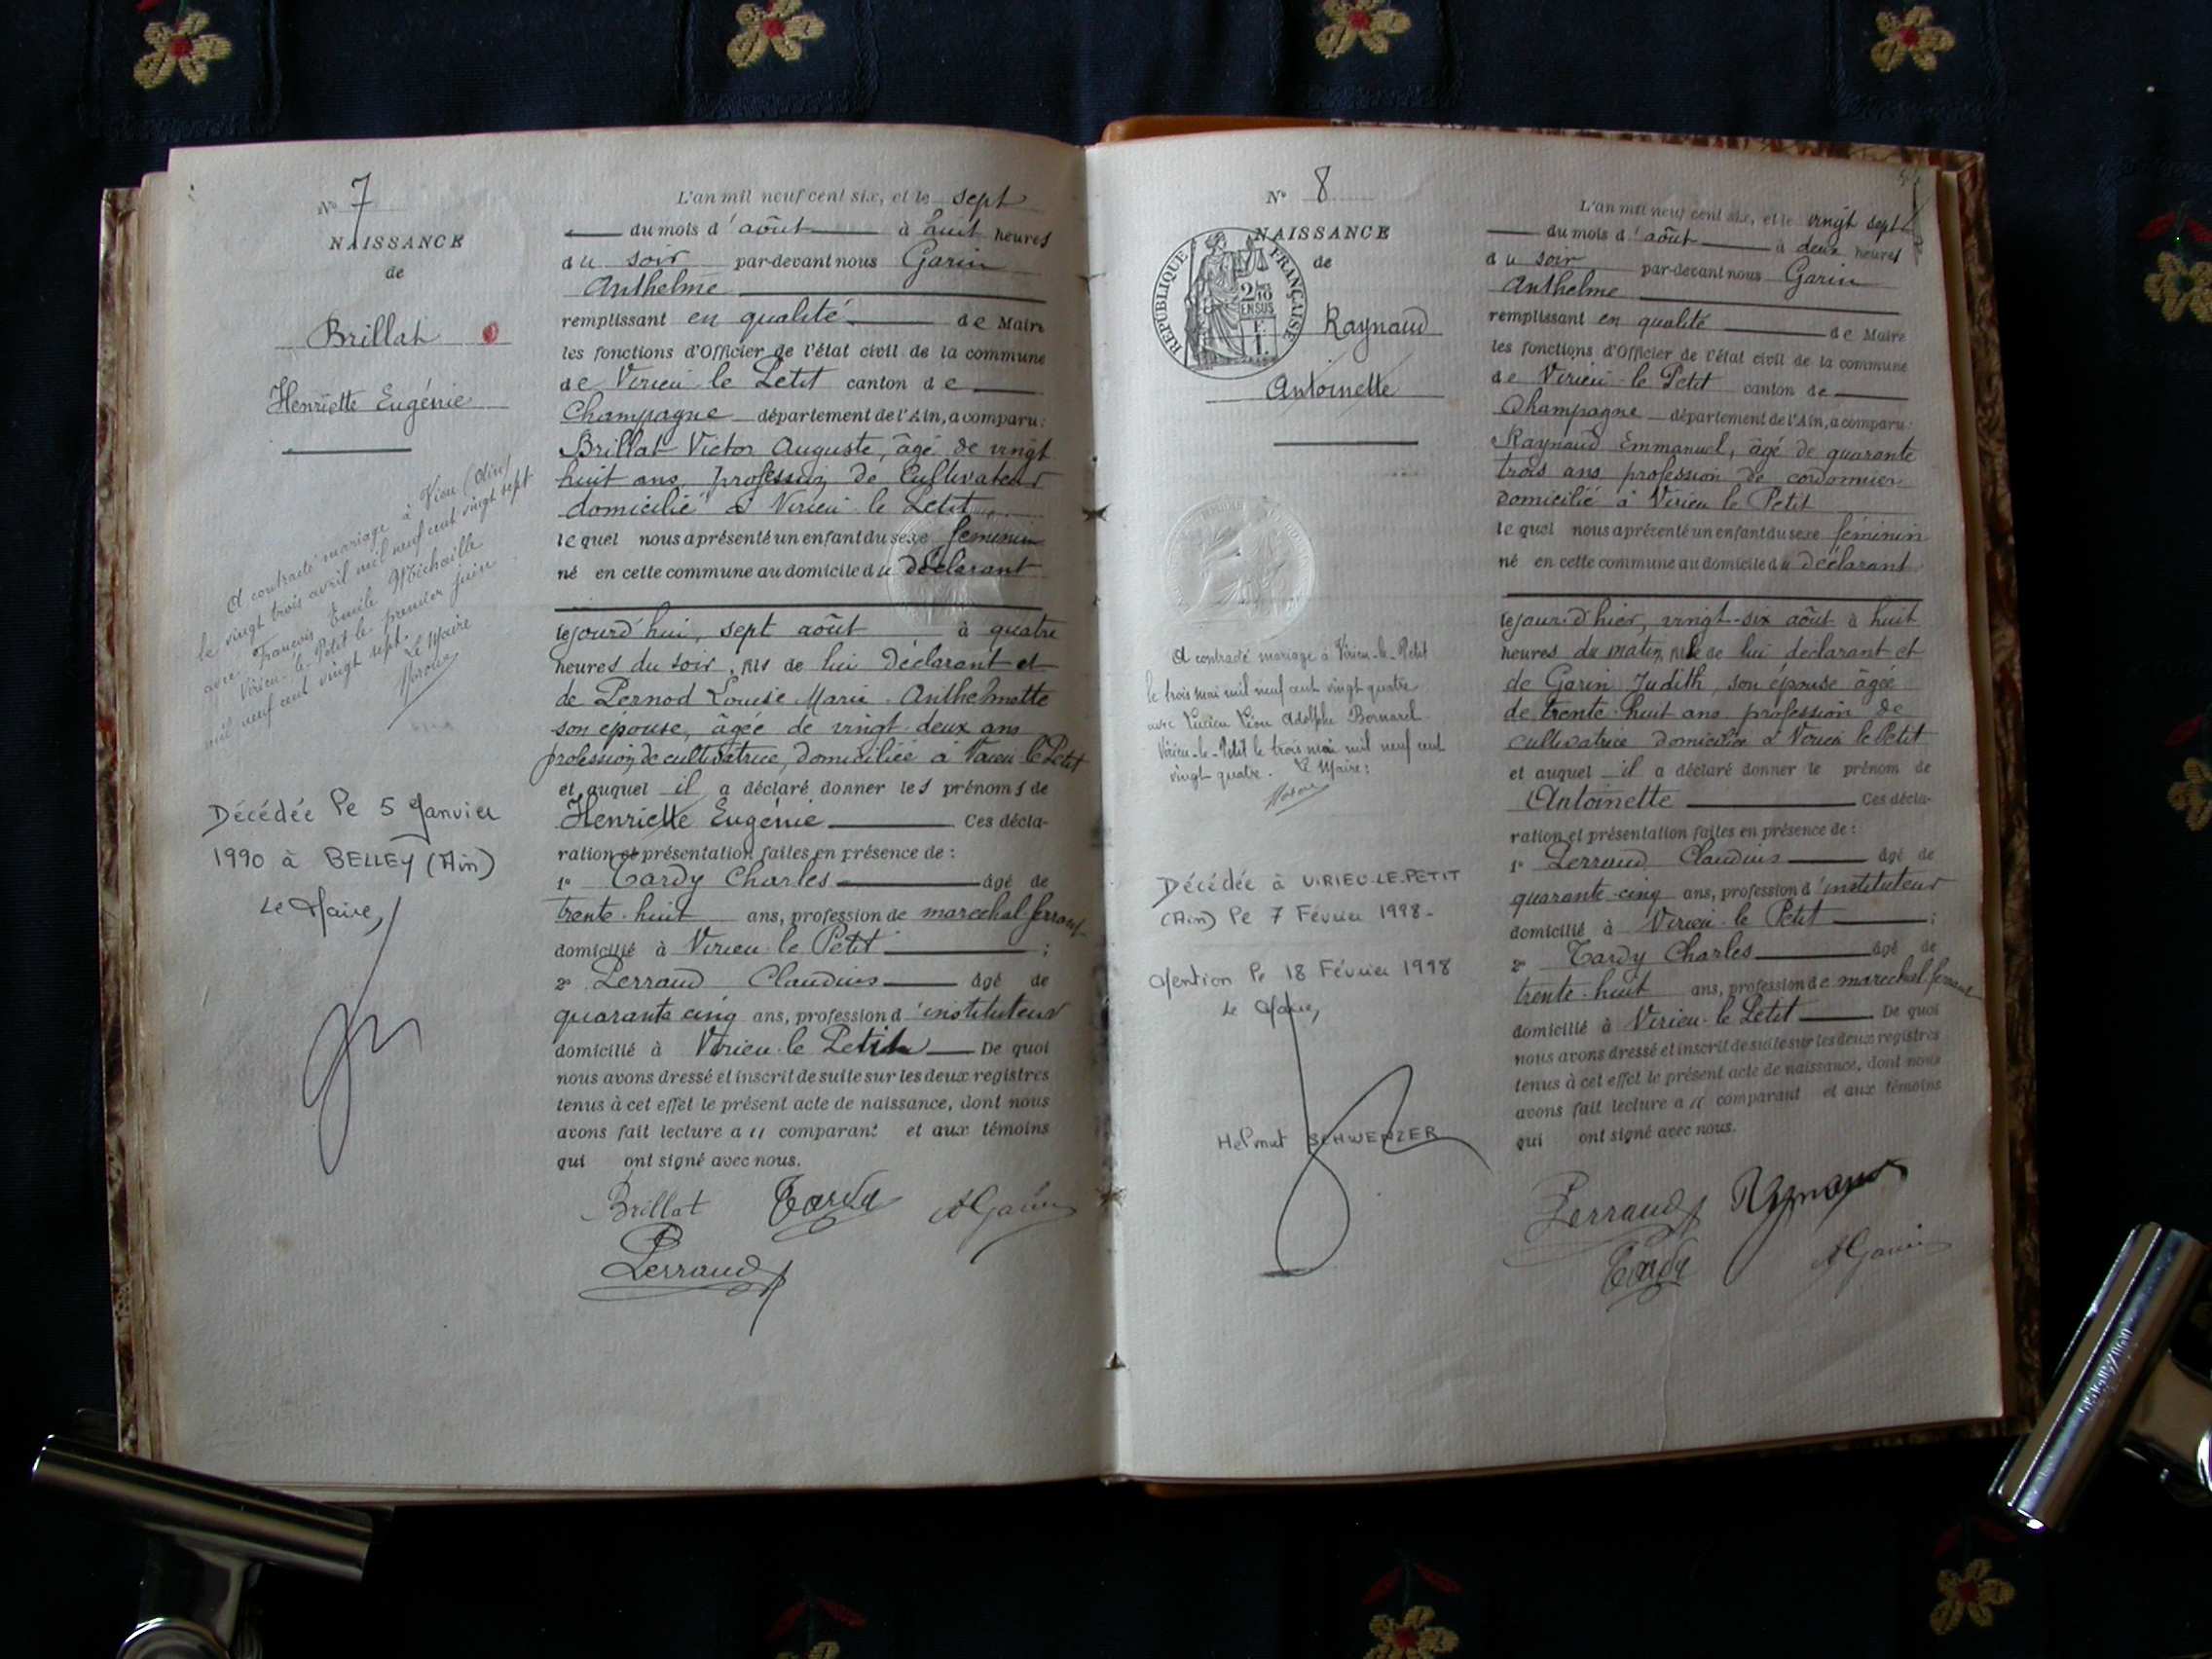 N° 7
NAISSANCE
de
Brillat
Henriette Eugénie
A contracté mariage à Vieu (Ain)
le vingt trois avril mil neuf cent vingt sept
avec François Emile Michaille
Virieu-le-Petit le premier juin
mil neuf cent vingt sept.
Le Maire
Décédée le 5 Janvier
1990 à BELLEY (Ain)
Le Maire,
L'an mil neuf cent six, et le sept
du mois d'août à huit heures
du soir par-devant nous Garin
Anthelme
remplissant en qualité de Maire
les fonctions d'Officier de l'état civil de la commune
de Virieu le Petit canton de
Champagne département de l'Ain, a comparu :
Brillat Victor Auguste, âgé de vingt
huit ans, profession de Cultivateur
domicilié à Virieu le Petit
lequel nous a présenté un enfant du sexe féminin
né en cette commune au domicile du déclarant
cejourd'hui, sept août à quatre
heures du soir, fils de lui Déclarant et
de Pernod Louise Marie Anthelmette
son épouse, âgée de vingt deux ans
profession de cultivatrice, domiciliée à Virieu le Petit
et auquel il a déclaré donner les prénoms de
Henriette Eugénie Ces décla-
ration et présentation faites en présence de :
1° Tardy Charles âgé de
trente-huit ans, profession de marechal-ferrant
domicilié à Virieu le Petit ;
2° Perraud Claudius âgé de
quarante cinq ans, profession d'instituteur
domicilié à Virieu le Petit De quoi
nous avons dressé et inscrit de suite sur les deux registres
tenus à cet effet le présent acte de naissance, dont nous
avons fait lecture au comparant et aux témoins
qui ont signé avec nous.
Brillat Tardy AGarin
Perraud
N° 8
NAISSANCE
de
RÉPUBLIQUE FRANÇAISE
2/10 EN SUS
Raynaud
Antoinette
A contracté mariage à Virieu-le-Petit
le trois mai mil neuf cent vingt quatre
avec Lucien Léon Adolphe Bornarel
Virieu-le-Petit le trois mai mil neuf cent
vingt quatre. Le Maire :
Décédée à VIRIEU-LE-PETIT
(Ain) le 7 Février 1998-
Mention le 18 Février 1998
Le Maire,
Helmut SCHWENZER
L'an mil neuf cent six, et le vingt sept
du mois d'août à deux heures
du soir par-devant nous Garin
Anthelme
remplissant en qualité de Maire
les fonctions d'Officier de l'état civil de la commune
de Virieu-le Petit canton de
Champagne département de l'Ain, a comparu :
Raynaud Emmanuel, âgé de quarante
trois ans profession de cordonnier
domicilié à Virieu le Petit
lequel nous a présenté un enfant du sexe féminin
né en cette commune au domicile du déclarant
lejour d'hier, vingt-six août à huit
heures du matin, fille de lui déclarant et
de Garin Judith, son épouse âgée
de trente-huit ans profession de
cultivatrice domiciliée à Virieu le Petit
et auquel il a déclaré donner le prénom de
Antoinette Ces décla-
ration et présentation faites en présence de :
1° Perraud Claudius âgé de
quarante-cinq ans, profession d'instituteur
domicilié à Virieu le Petit ;
2° Tardy Charles âgé de
trente-huit ans, profession de marechal-ferrant
domicilié à Virieu-le Petit De quoi
nous avons dressé et inscrit de suite sur les deux registres
tenus à cet effet le présent acte de naissance, dont nous
avons fait lecture au comparant et aux témoins
qui ont signé avec nous.
Perraud Raynaud
Tardy AGarin